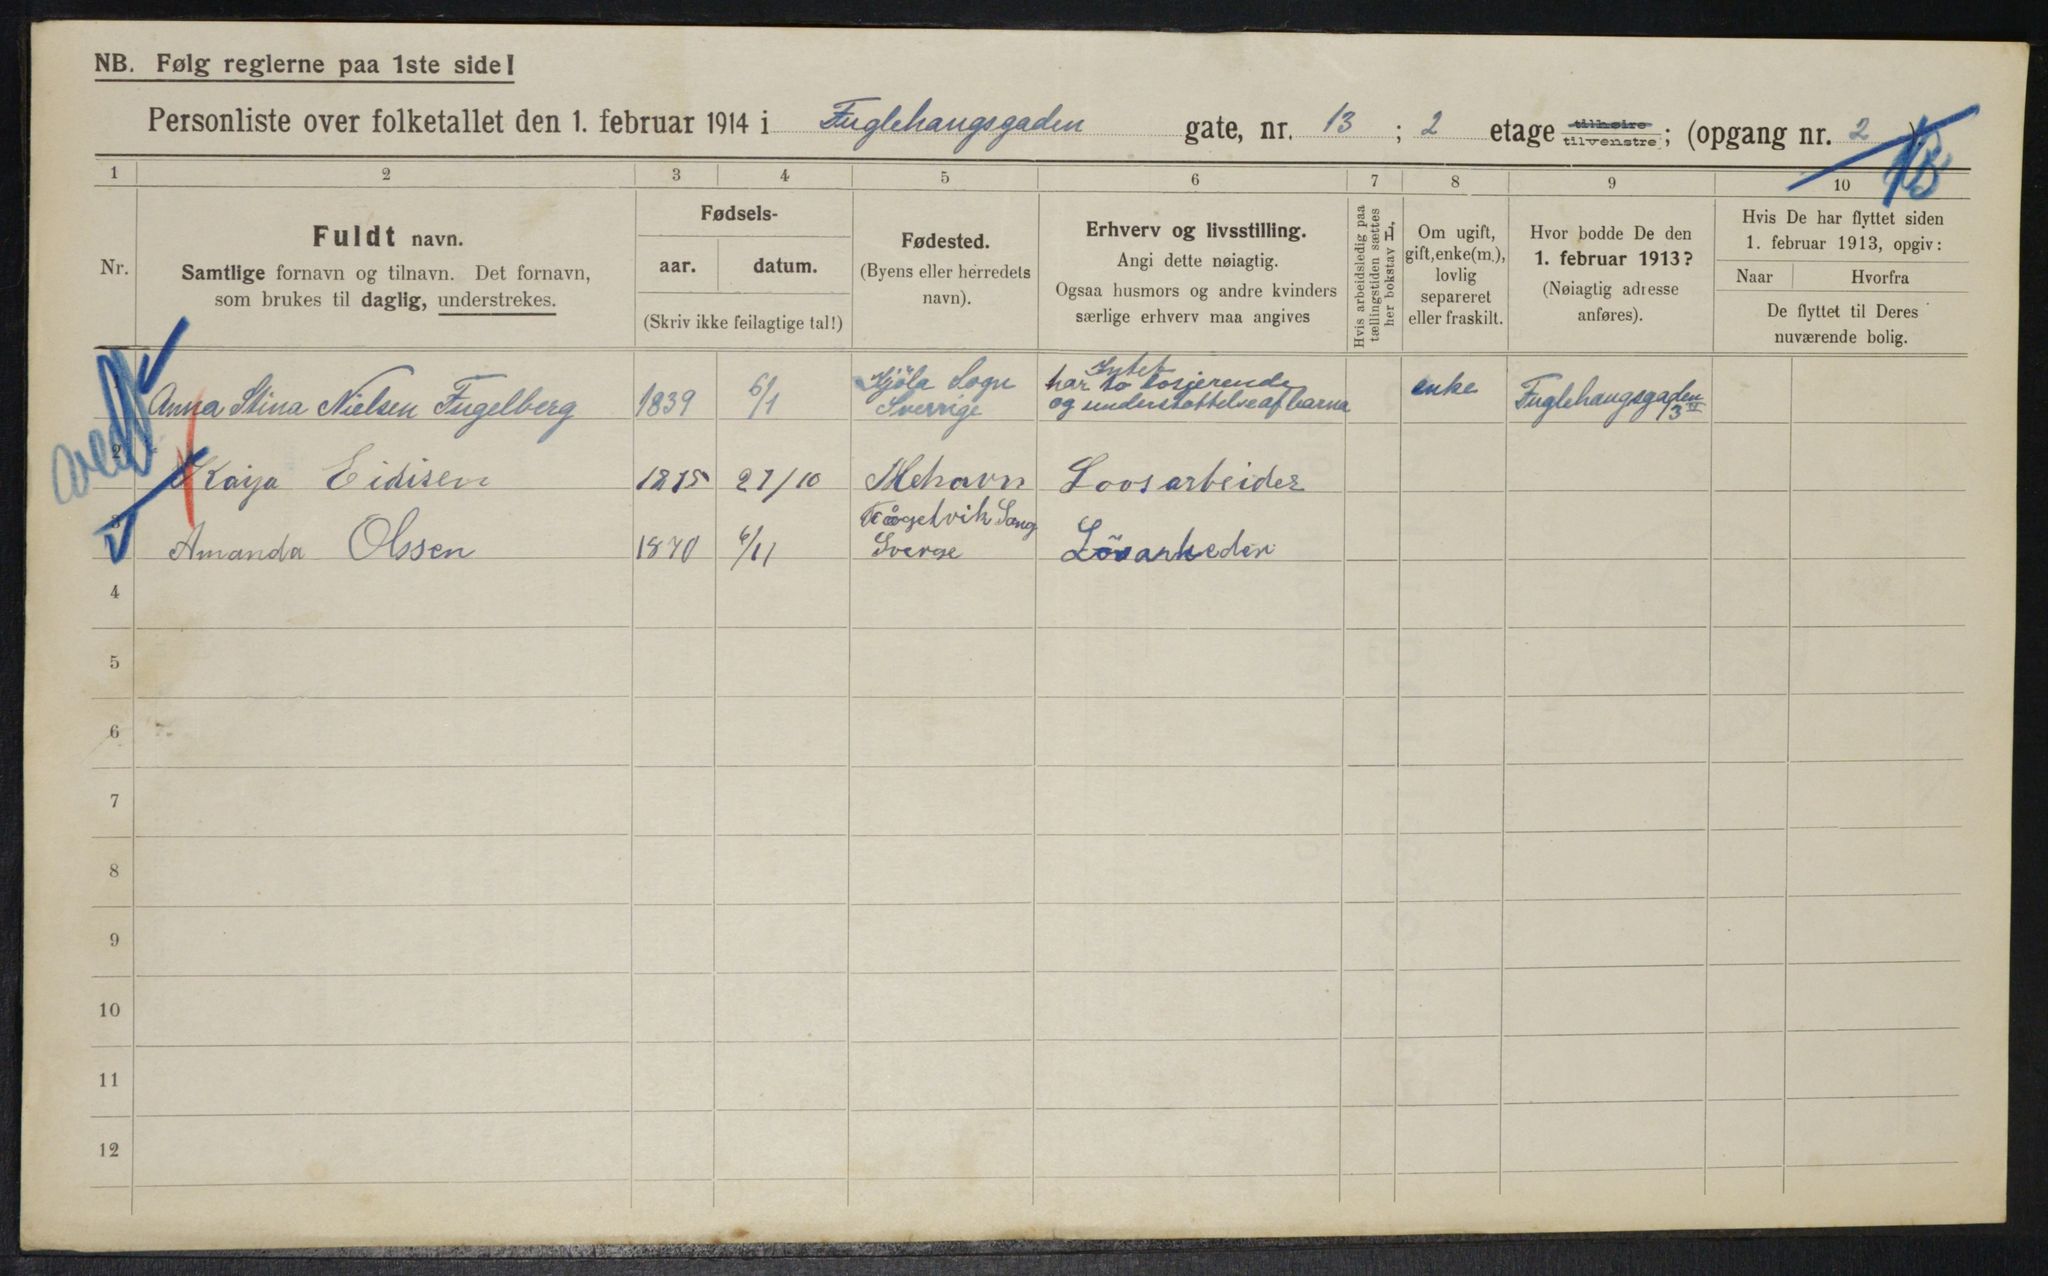 NB. Følg reglerne paa 1ste side!
Personliste over folketallet den 1. februar 1914 i Fuglehaugsgaden gate, nr. 13 ; 2 etage tilhøire tilvenstre; (opgang nr. 2 )
1 2 3 4 5 6 7 8 9 10
Nr.
Fuldt navn.
Samtlige fornavn og tilnavn. Det fornavn,
som brukes til daglig, understrekes.
Fødsels-
aar. datum.
(Skriv ikke feilagtige tal!)
Fødested.
(Byens eller herredets
navn).
Erhverv og livsstilling.
Angi dette nøiagtig.
Ogsaa husmors og andre kvinders
særlige erhverv maa angives
Hvis arbeidsledig paa
tællingstiden sættes
her bokstav L,
Om ugift,
gift, enke(m.),
lovlig
separeret
eller fraskilt.
Hvor bodde De den
1. februar 1913?
(Nøiagtig adresse
anføres).
Hvis De har flyttet siden
1. februar 1913, opgiv:
Naar Hvorfra
De flyttet til Deres
nuværende bolig.
1 Anna Stina Nielsen Fugelberg 1839 6/1 Sogn Sverrige
Intet
har to losjerende
og understøttelse af barna
enke
Fuglehaugsgaden
13 II
2 Kaja Eidisen 1875 27/10 Mehavn Loosarbeider
3 Amanda Olssen 1870 6/11 Sverge
4
5
6
7
8
9
10
11
12